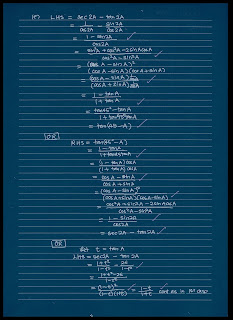 LHS = sec2A - tan2A
= 1/cos2A - sin2A/cos2A
= (1 - sin2A)/cos2A
= (sin²A + cos²A - 2sinAcosA)/(cos²A - sin²A)
= (cosA - sinA)²/((cosA - sinA)(cosA + sinA))
= (cosA - sinA)/(cosA + sinA)
= (1 - tanA)/(1 + tanA)
= (tan45° - tanA)/(1 + tan45° tanA)
= tan(45 - A)
OR
RHS = tan(45° - A)
= (1 - tanA)/(1 + tanA)
= ((1 - tanA) cosA)/((1 + tanA) cosA)
= (cosA - sinA)/(cosA + sinA)
= (cosA - sinA)²/((cosA + sinA)(cosA - sinA))
= (cos²A + sin²A - 2sinAcosA)/(cos²A - sin²A)
= (1 - sin2A)/cos2A
= sec2A - tan2A
OR
let t = tanA
LHS = sec2A - tan2A
= (1+t²)/(1-t²) - 2t/(1-t²)
= (1+t²-2t)/(1-t²)
= (1-t)²/((1-t)(1+t)) = (1-t)/(1+t) as in